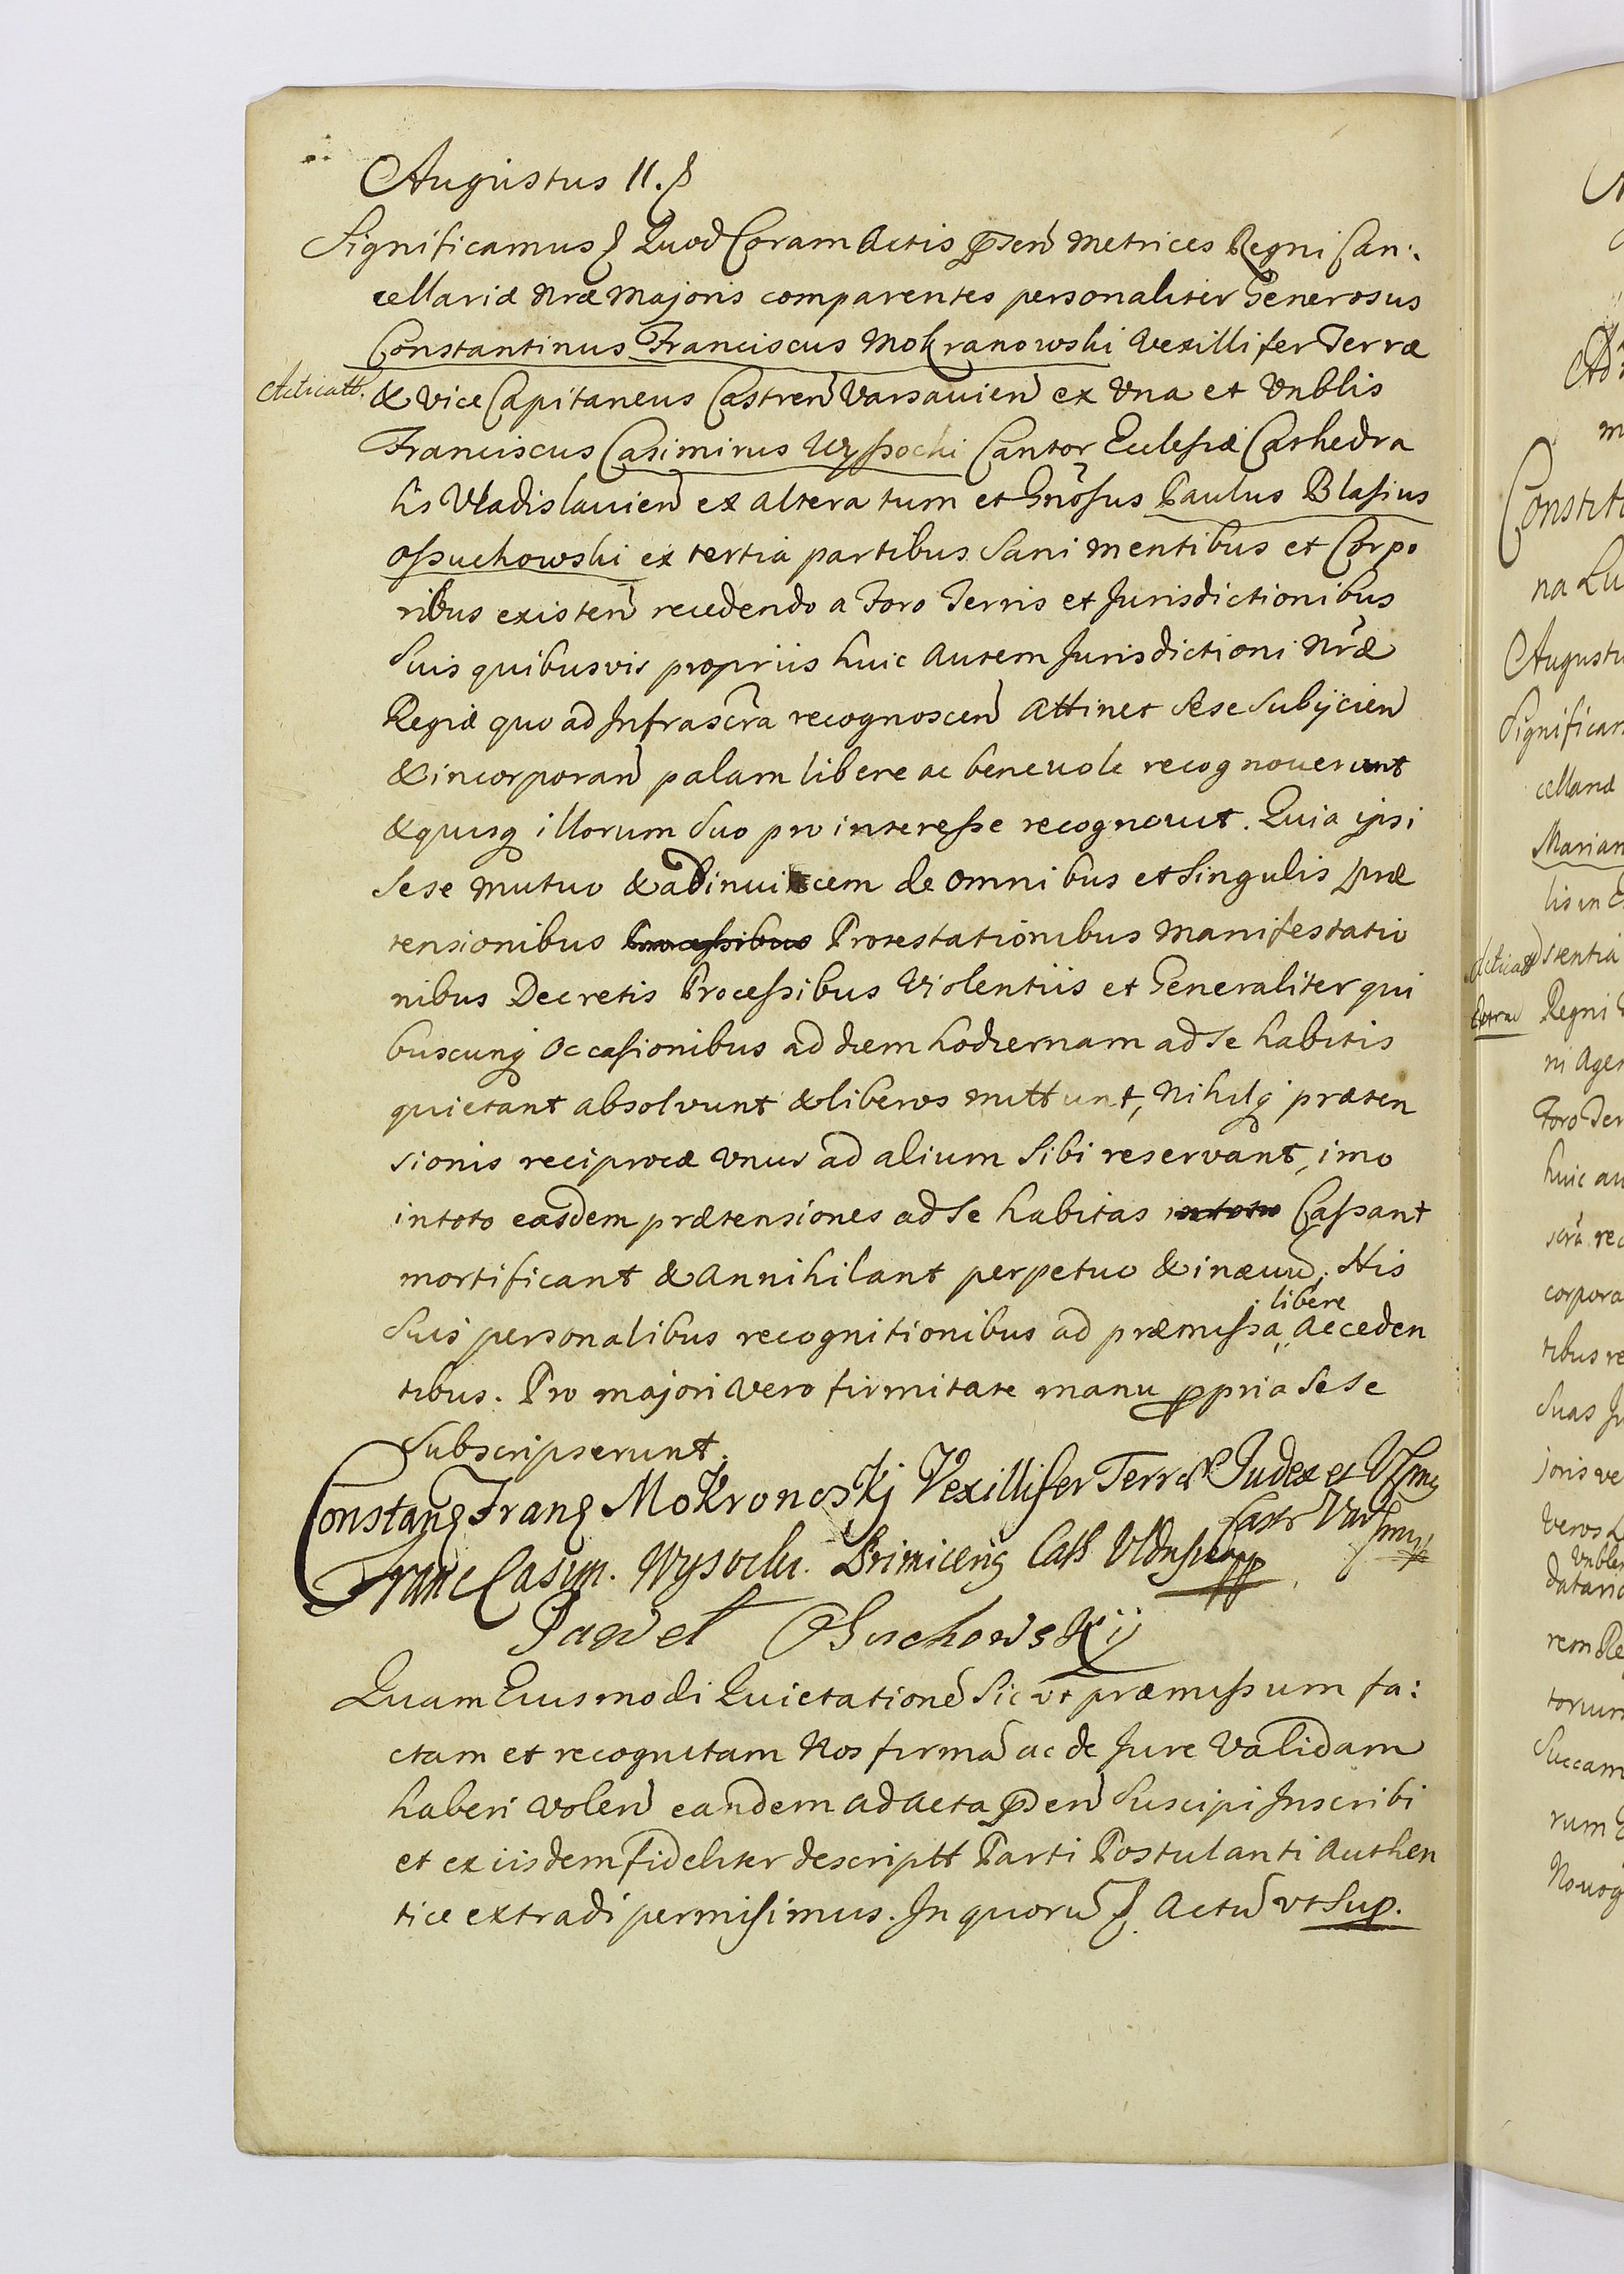 Augustus II. &
Significamus & Quod Coram Actis p̄sen̄ metrices Regni Can:
cellariæ Nræ Majoris comparentes personaliter Generosus
Constantinus Franciscus Mokranowski Vexillifer Terræ
Acticatt. & vice Capitaneus Castren̄ Varsauien̄ ex Vna et Vnblis
Franciscus Casimirus Wyssocki Cantor Eclesiæ Cathedra
lis Vladislauien̄ ex altera tum et Gnōsus Paulus Blasius
Ossuchowski ex tertia partibus Sani mentibus et Corpo
ribus existen̄ recedendo a Foro Terris et Jurisdictionibus
Suis quibusvis propriis huic autem Jurisdictioni Nr̄æ
Regiæ quo ad Infrascr̄a recognoscen̄ Attinet Sese Subÿcien̄
& incorporan̄ palam libere ac beneuole recognouerunt
& quisq illorum Suo pro interesse recognouit. Quia ipsi
Sese mutuo & adinuicem de omnibus et Singulis præ
tensionibus Processibus Protestationibus Manifestatio
nibus Decretis Processibus Violentiis et Generaliter qui
buscunq Occasionibus ad diem hodiernam ad Se habitis
quietant absolvunt & liberos mittunt, Nihilq præten
sionis reciprocæ Vnus ad alium Sibi reservant, imo
in toto easdem prætensiones ad Se habitas in toto Cassant
mortificant & Annihilant perpetuo & in æuū. His
libere
Suis personalibus recognitionibus ad præmissa Acceden
tibus. Pro majori vero firmitate manu p̱pria Sese
Subscripserunt.
Constanq Franq Mokronoskj Vexillifer Terræ Judex et
Castr
Franc Casim. Wysocki. Primicerig Cath
Pawel Osuchowskij
Quam Eiusmodi Quietationē Sic vt præmissum fa:
ctam et recognitam Nos firmā ac de Jure Validam
haberi volen̄ eandem ad Acta p̄sen̄ Suscipi Inscribi
et ex iisdem fideliter descriptt Parti Postulanti Authen
tice extradi permisimus. In quorū & Actū vt Sup.